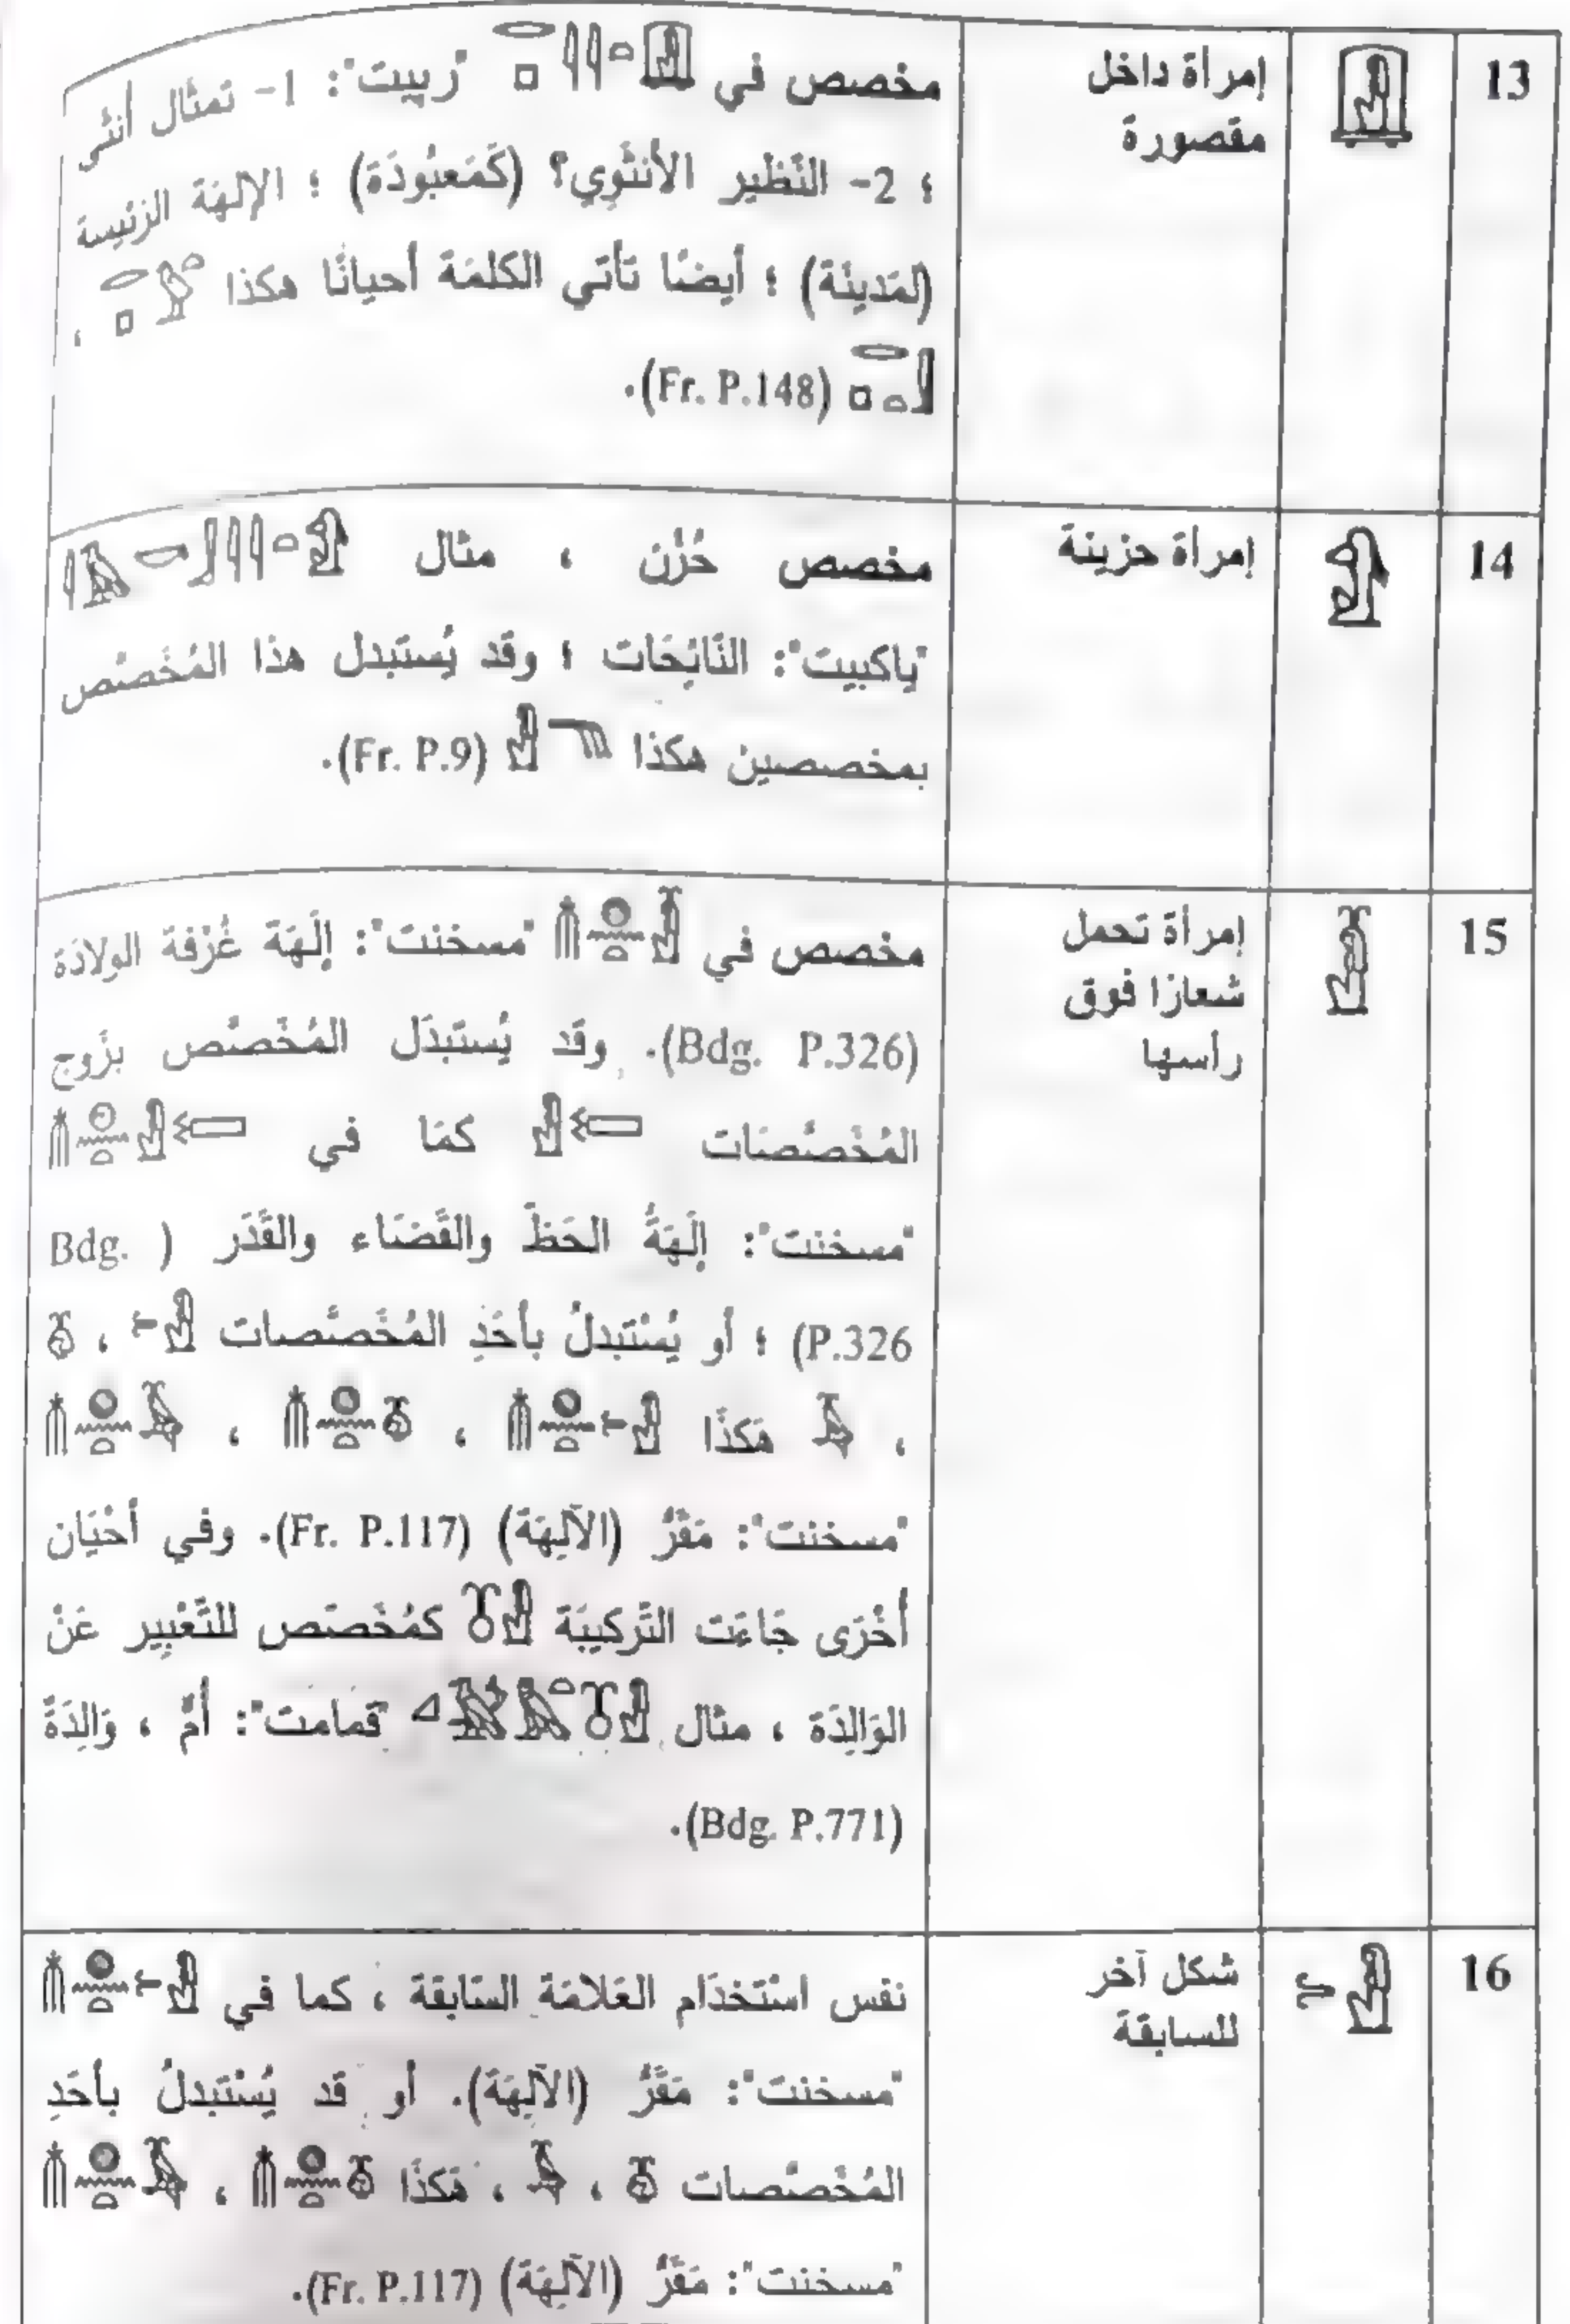 13
إمرأة داخل
مقصورة
مخصص في "ربيت": 1- تمثال أنثى
؛ 2- النَّظير الأُنثَوِي؟ (كَمَعبُودَة) ؛ الإلهَة الرئيسة
(لمَدينَة) ؛ أيضًا تأتي الكلمَة أحيانًا هكذا ،
(Fr. P.148).
14
إمرأة حزينة
مخصص حُزْن ، مثال
"ياكبيت": النَّائِحَات ؛ وقد يُستَبدل هذا المُخَصَّص
بمخصصين هكذا (Fr. P.9).
15
إمرأة تحمل
شعارًا فوق
رأسها
مخصص في "مسخنت": إلَهَة غُرْفة الولادَة
(Bdg. P.326). وقد يُستَبدَل المُخَصَّص بزَوج
المُخَصَّصَات كمَا في
"مسخنت": إلَهَةُ الحَظّ والقَضَاء والقَدَر ( Bdg.
P.326) ؛ أو يُسْتَبدلُ بأحَدِ المُخَصَّصات ،
، هَكذَا ، ،
"مسخنت": مَقَرُّ (الآلِهَة) (Fr. P.117). وفي أحْيَان
أُخْرَى جَاءَت التَّركيبَة كمُخَصَّص للتَّعْبِير عَنْ
الوَالِدَة ، مثال "قمامت": أمّ ، وَالِدَة
(Bdg. P.771).
16
شكل آخر
للسابقة
نفس اسْتخدَام العَلامَة السَّابقة ، كما في
"مسخنت": مَقَرُّ (الآلِهَة). أو قد يُسْتَبدلُ بأحَدِ
المُخَصَّصات ، ، هَكذَا ،
"مسخنت": مَقَرُّ (الآلِهَة) (Fr. P.117).